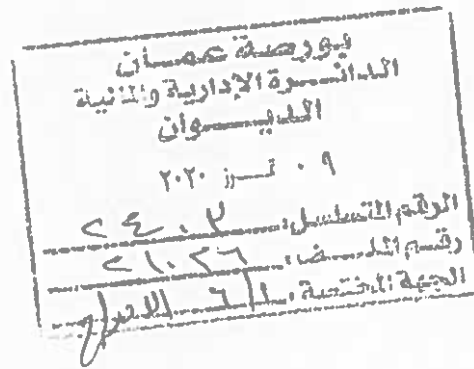 بورصة عمان
الدائرة الإدارية والمالية
الديوان
٠٩ تموز ٢٠٢٠
الرقم المتسلسل: ٢٤٠٣
رقم الملف: ٢١٠٢٦
الجهة المختصة: